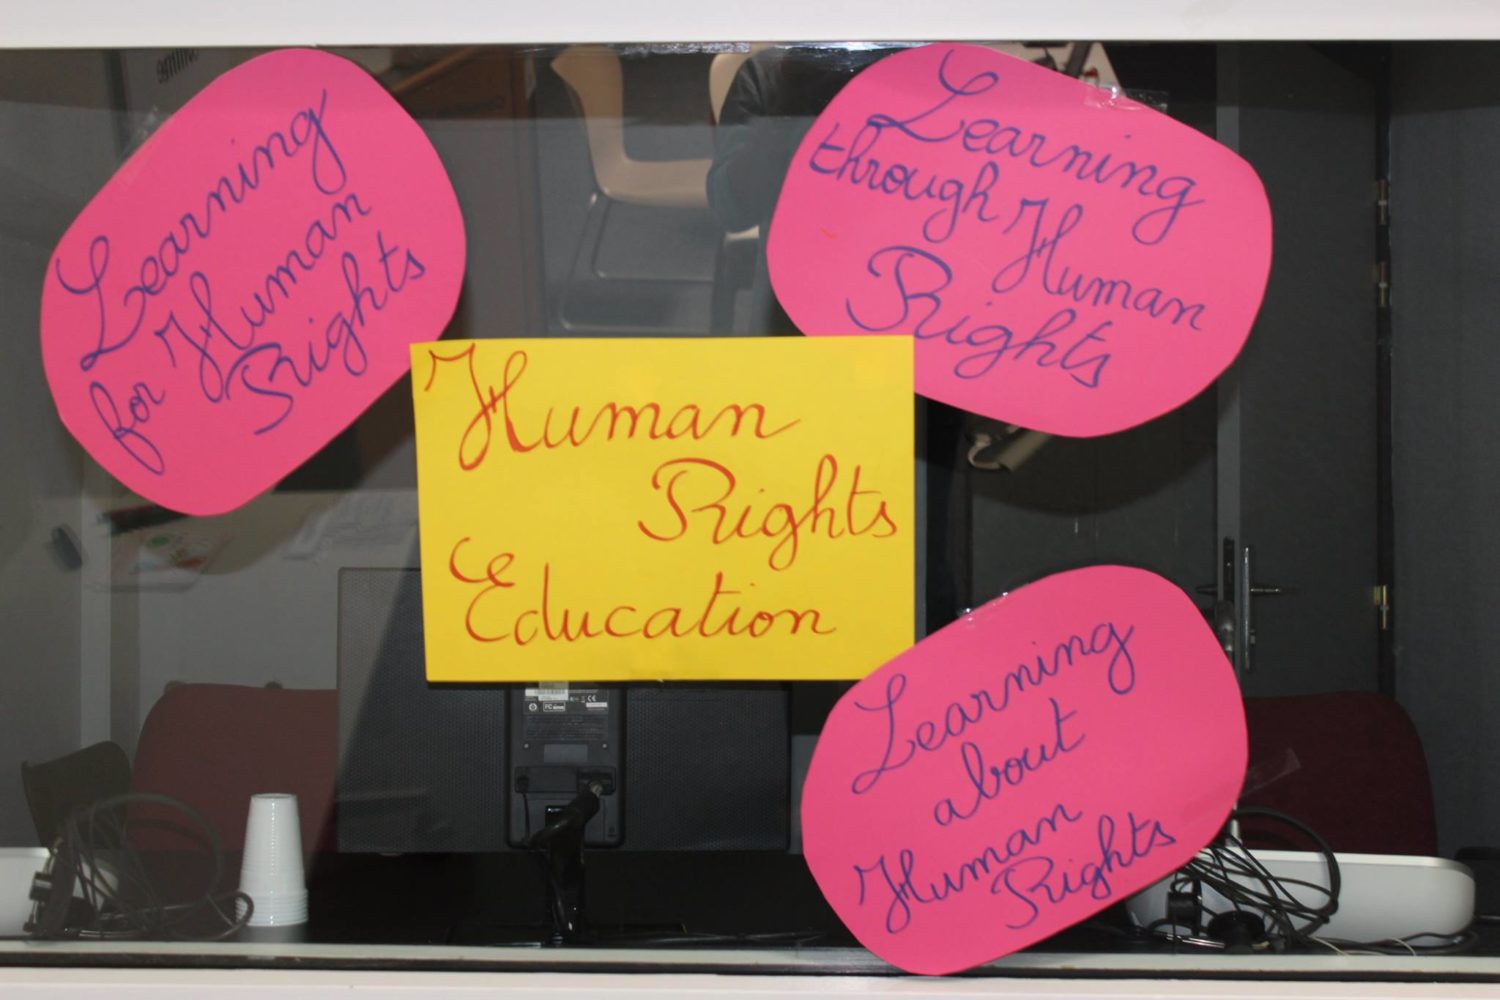 Learning
for Human
Rights
Learning
through Human
Rights
Human
Rights
Education
Learning
about
Human
Rights